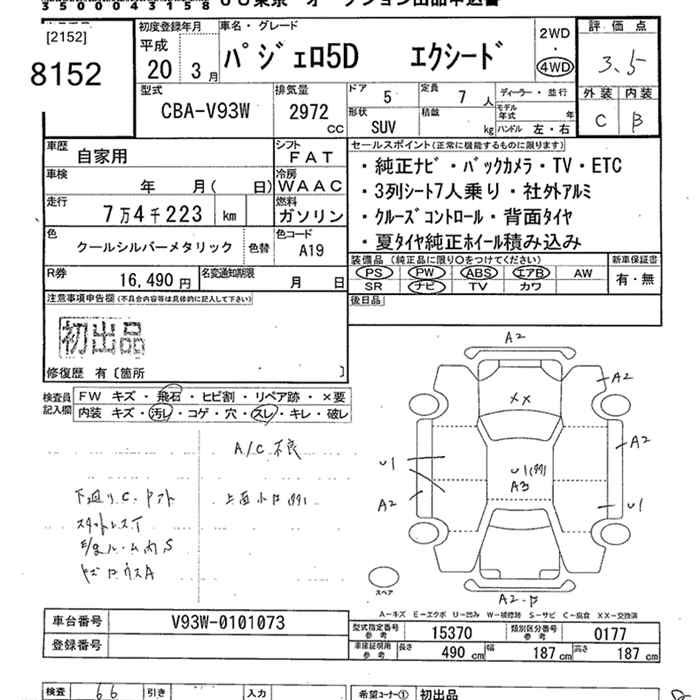 35000043158 UC東京 オークション出品申込書
[2152]
8152
初度登録年月
平成
20 3月
車名・グレード
パジェロ5D エクシード
2WD
4WD
評価点
3.5
外装 内装
C B
型式
CBA-V93W
排気量
2972
CC
ドア 5
定員 7人
形状
SUV
積載
kg
ディーラー・並行
モデル年式 年
ハンドル 左・右
車歴
自家用
シフト
FAT
車検
年 月(日)
冷房
WAAC
走行
7万4千223 km
燃料
ガソリン
色
クールシルバーメタリック
色替
色コード
A19
R券
16,490円
名変通知期限
月 日
セールスポイント(正常に機能するものに限ります)
・純正ナビ・バックカメラ・TV・ETC
・3列シート7人乗り・社外アルミ
・クルーズコントロール・背面タイヤ
・夏タイヤ純正ホイール積み込み
装備品(純正品に限り○をつけてください)
PS PW ABS エアB AW
SR ナビ TV カワ
新車保証書
有・無
後日品
注意事項申告欄(不具合内容等は具体的に記入して下さい)
初出品
修復歴 有〔箇所 〕
検査員記入欄
FW キズ・飛石・ヒビ割・リペア跡・×要
内装 キズ・汚レ・コゲ・穴・スレ・キレ・破レ
A/C不良
スタットレスT
A2
A2
XX
A2
U1
U1
A3
A2
U1
スペア
A2
A-キズ E-エクボ U-凹み W-補修跡 S-サビ C-腐食 XX-交換済
車台番号
V93W-0101073
登録番号
型式指定番号 参考
15370
類別区分番号 参考
0177
車庫証明用 参考
長さ 490cm 幅 187cm 高さ 187cm
検査 66 引き 入力
希望コーナー① 初出品